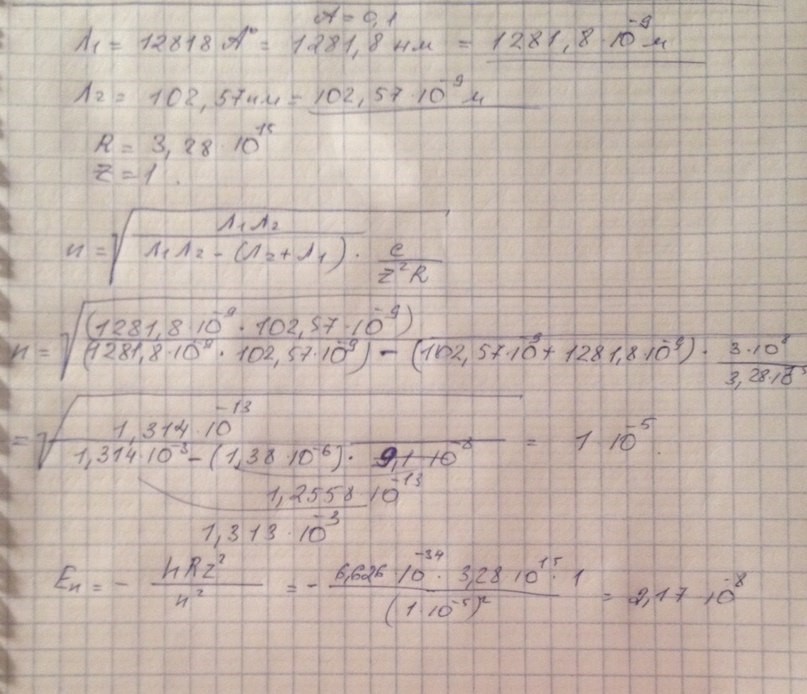 A = 0,1
λ1 = 12818 A° = 1281,8 нм = 1281,8·10^-9 м
λ2 = 102,57 нм = 102,57·10^-9 м
R = 3,28·10^15
Z = 1.
n = √(λ1λ2 / (λ1λ2 - (λ2+λ1)·c/(z²R)))
n = √((1281,8·10^-9·102,57·10^-9) / ((1281,8·10^-9·102,57·10^-9) - (102,57·10^-9+1281,8·10^-9)·3·10^8/(3,28·10^15)))
= √(1,314·10^-13 / (1,314·10^-3 - (1,38·10^-6)·9,1·10^-8)) = 1·10^-5.
1,2558·10^-13
1,313·10^-3
En = - hRz²/n² = - 6,626·10^-34·3,28·10^15·1/(1·10^-5)² = 2,17·10^-8